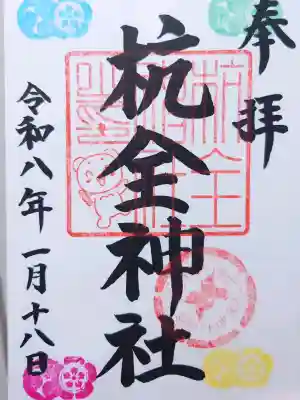 奉拝
杭全神社
令和八年一月十八日